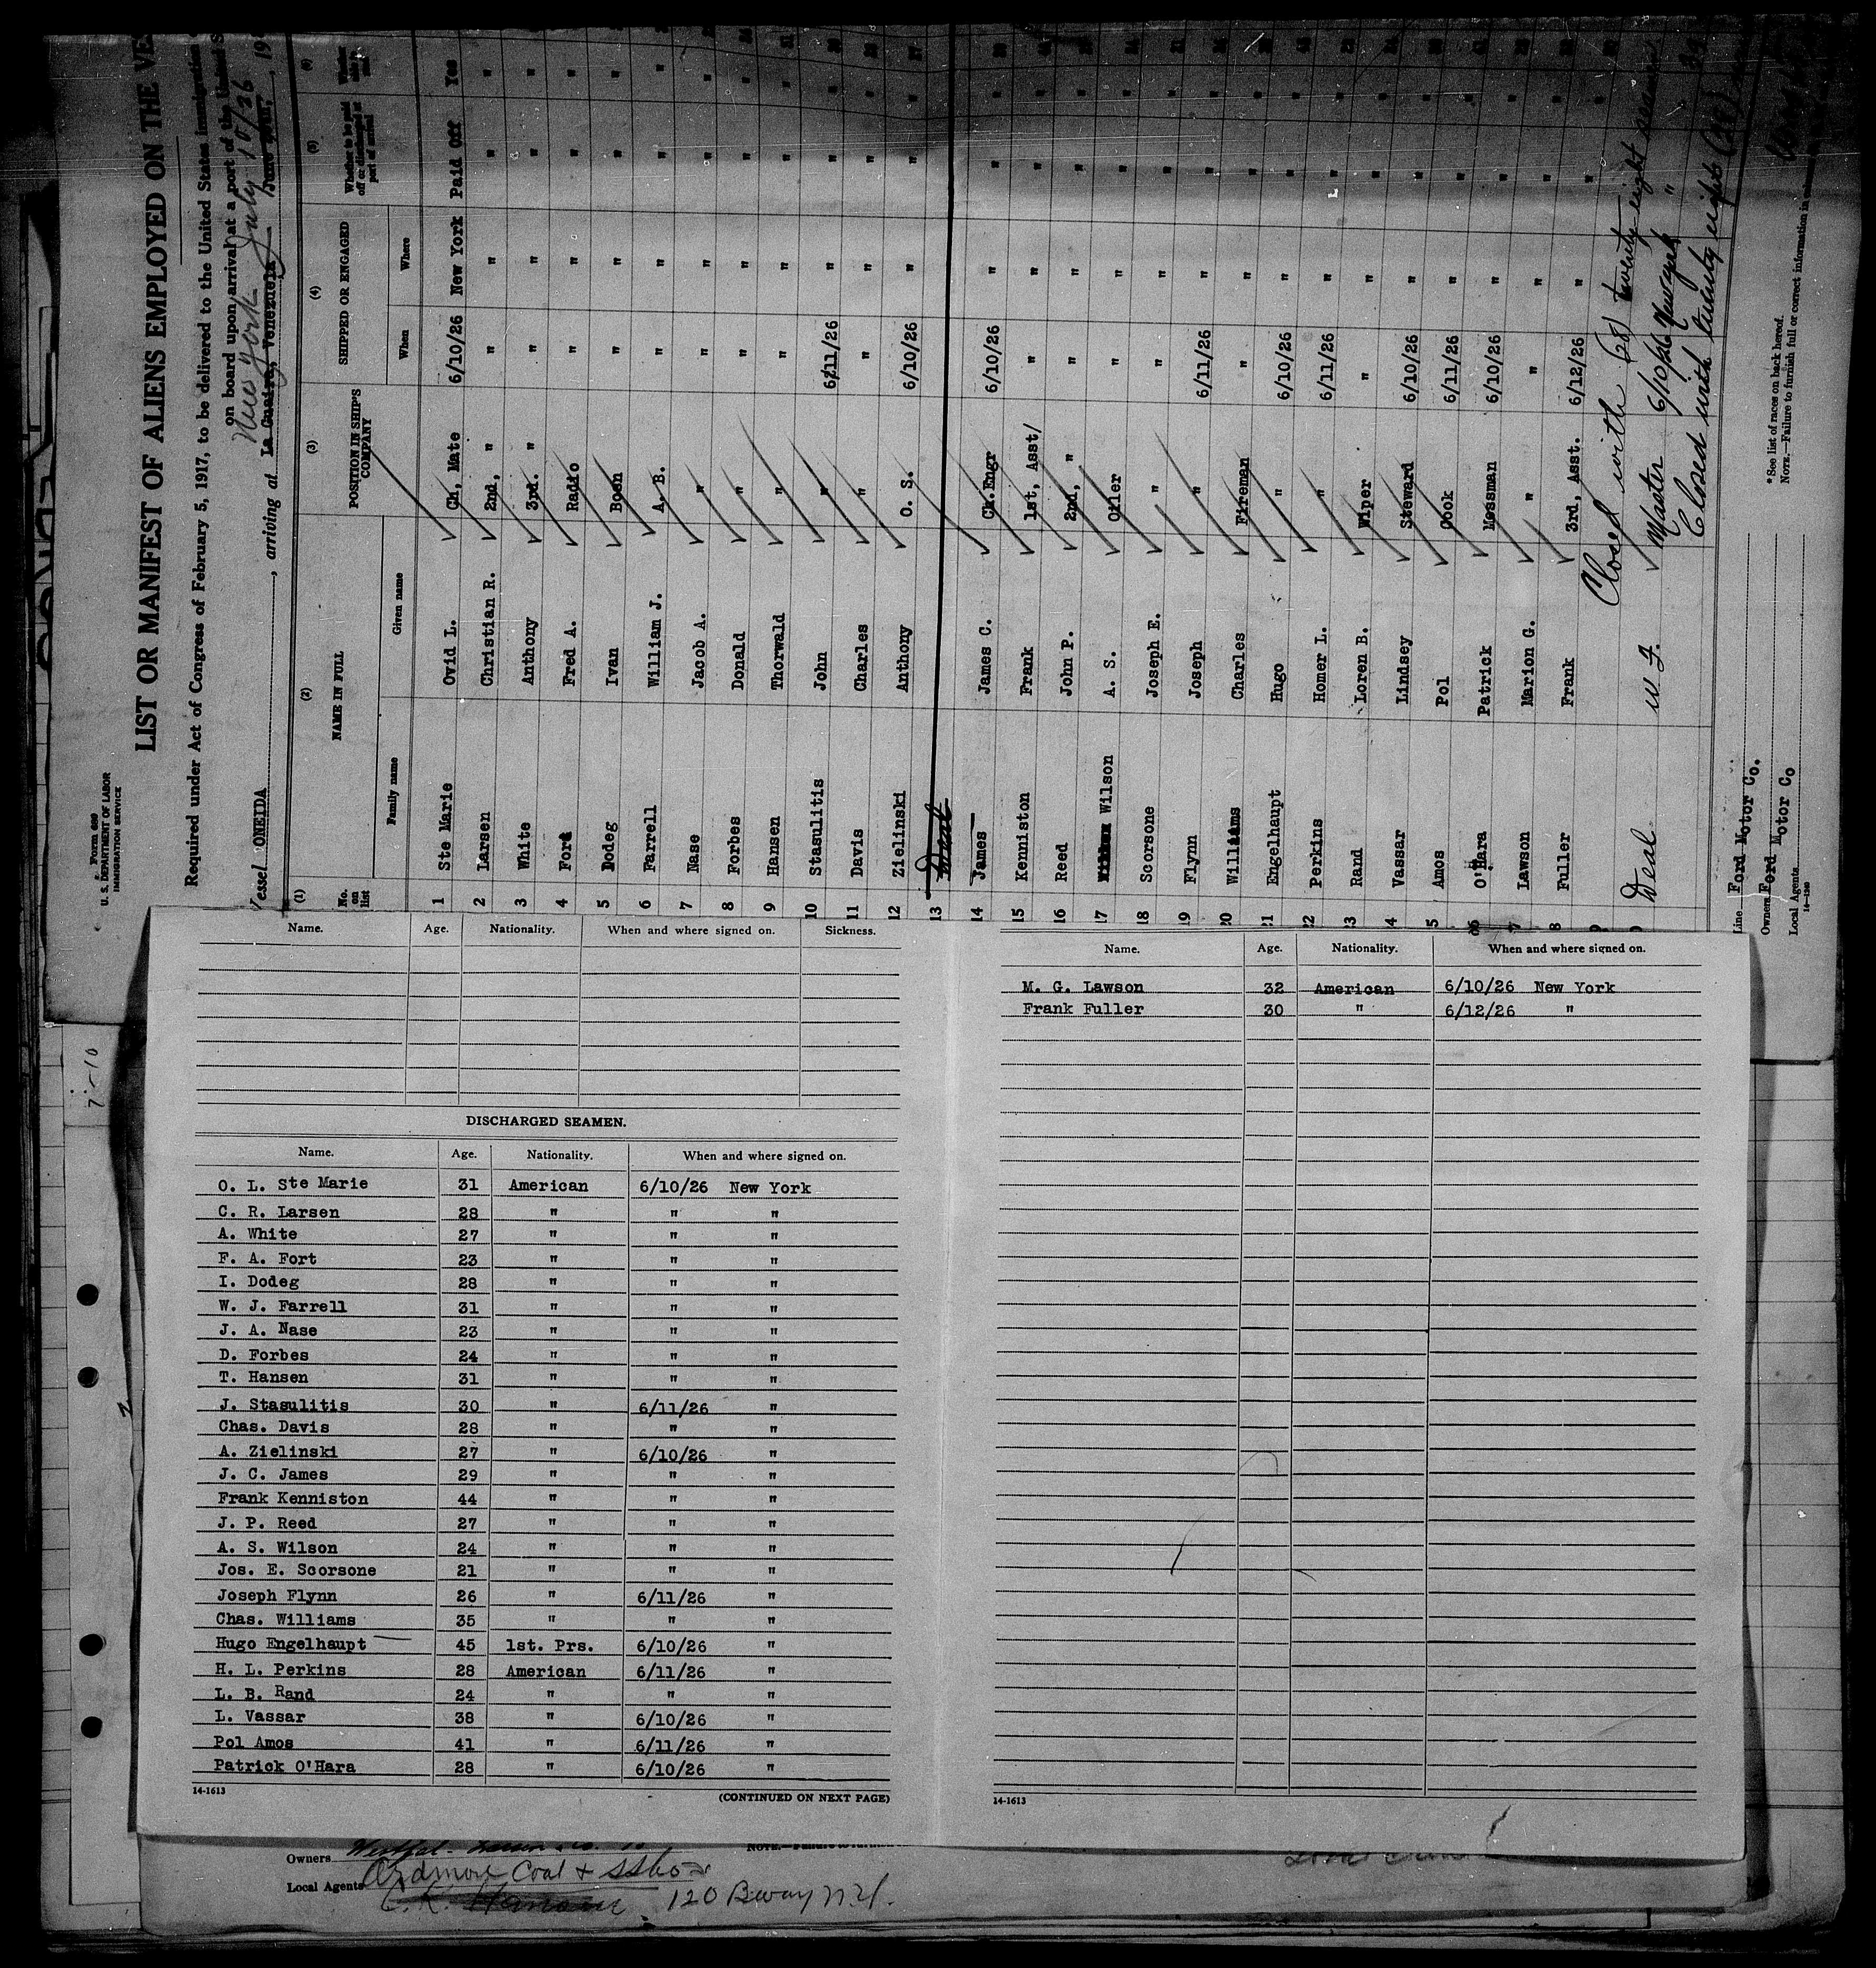 Form 689
U. S. DEPARTMENT OF LABOR
IMMIGRATION SERVICE
LIST OR MANIFEST OF ALIENS EMPLOYED ON THE VES
Required under Act of Congress of February 5, 1917, to be delivered to the United States immigration
on board upon arrival at a port of the United S
New York July 10/26
Vessel ONEIDA, arriving at La Guaira, Venezuela, 19
(1) (2) (3) (4) (5) (6)
No. on list NAME IN FULL POSITION IN SHIP'S COMPANY SHIPPED OR ENGAGED Whether to be paid off or discharged at port of arrival
Family name Given name When Where
1 Ste Marie Ovid L. Ch, Mate 6/10/26 New York Paid Off Yes
2 Larsen Christian R. 2nd, " " " " "
3 White Anthony 3rd. " " " " "
4 Fort Fred A. Radio " " " "
5 Dodeg Ivan Bosn " " " "
6 Farrell William J. A. B. " " " "
7 Nase Jacob A. " " " " "
8 Forbes Donald " " " " "
9 Hansen Thorwald " " " " "
10 Stasulitis John " 6/11/26 " " "
11 Davis Charles " " " " "
12 Zielinski Anthony O. S. 6/10/26 " " "
13 Deal
14 James James C. Ch.Engr 6/10/26 " " "
15 Kenniston Frank 1st, Asst/ " " " "
16 Reed John P. 2nd, " " " " "
17 Wilson A. S. Oiler " " " "
18 Scorsone Joseph E. " " " " "
19 Flynn Joseph " 6/11/26 " " "
20 Williams Charles Fireman " " " "
21 Engelhaupt Hugo " 6/10/26 " " "
22 Perkins Homer L. " 6/11/26 " " "
23 Rand Loren B. Wiper " " " "
4 Vassar Lindsey Steward 6/10/26 " " "
5 Amos Pol Cook 6/11/26 " " "
26 O'Hara Patrick Messman 6/10/26 " " "
7 Lawson Marion G. " " " " "
8 Fuller Frank 3rd, Asst. 6/12/26 " " "
Closed with (28) twenty-eight
Deal W. F. Master 6/10/26 New York "
Closed with twenty eight
Line Ford Motor Co.
Owners Ford Motor Co
Local Agents
14-1240
*See list of races on back hereof.
NOTE.—Failure to furnish full or correct information in
7-10
Name. Age. Nationality. When and where signed on. Sickness.
DISCHARGED SEAMEN.
Name. Age. Nationality. When and where signed on.
O. L. Ste Marie 31 American 6/10/26 New York
C. R. Larsen 28 " " "
A. White 27 " " "
F. A. Fort 23 " " "
I. Dodeg 28 " " "
W. J. Farrell 31 " " "
J. A. Nase 23 " " "
D. Forbes 24 " " "
T. Hansen 31 " " "
J. Stasulitis 30 " 6/11/26 "
Chas. Davis 28 " " "
A. Zielinski 27 " 6/10/26 "
J. C. James 29 " " "
Frank Kenniston 44 " " "
J. P. Reed 27 " " "
A. S. Wilson 24 " " "
Jos. E. Scorsone 21 " " "
Joseph Flynn 26 " 6/11/26 "
Chas. Williams 35 " " "
Hugo Engelhaupt 45 1st. Prs. 6/10/26 "
H. L. Perkins 28 American 6/11/26 "
L. B. Rand 24 " " "
L. Vassar 38 " 6/10/26 "
Pol Amos 41 " 6/11/26 "
Patrick O'Hara 28 " 6/10/26 "
14-1613
(CONTINUED ON NEXT PAGE)
Name. Age. Nationality. When and where signed on.
M. G. Lawson 32 American 6/10/26 New York
Frank Fuller 30 " 6/12/26 "
14-1613
Owners
Local Agents Ardmore Coal & SS Co
120 Bway N.Y.